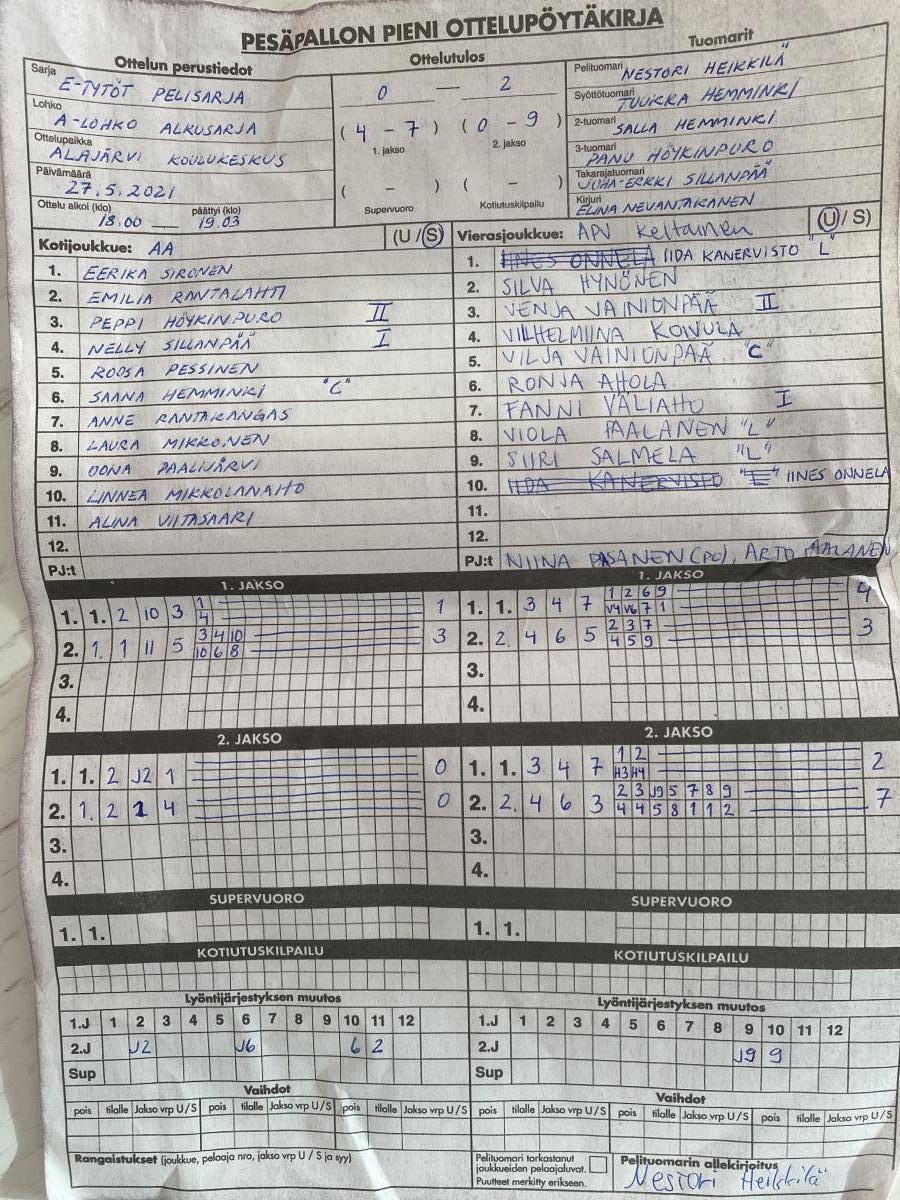 PESÄPALLON PIENI OTTELUPÖYTÄKIRJA
Ottelun perustiedot
Sarja E-TYTÖT PELISARJA
Lohko A-LOHKO ALKUSARJA
Ottelupaikka ALAJÄRVI KOULUKESKUS
Päivämäärä 27.5.2021
Ottelu alkoi (klo) 18.00 päättyi (klo) 19.03
Ottelutulos
0 — 2
( 4 - 7 ) ( 0 - 9 )
1. jakso 2. jakso
( - ) ( - )
Supervuoro Kotiutuskilpailu
Tuomarit
Pelituomari NESTORI HEIKKILÄ
Syöttötuomari TUUKKA HEMMINKI
2-tuomari SALLA HEMMINKI
3-tuomari PANU HÖYKINPURO
Takarajatuomari JUHA-ERKKI SILLANPÄÄ
Kirjuri ELINA NEVANTAKANEN
Kotijoukkue: AA (U/S)
1. EERIKA SIRONEN
2. EMILIA RANTALAHTI
3. PEPPI HÖYKINPURO II
4. NELLY SILLANPÄÄ I
5. ROOSA PESSINEN
6. SAANA HEMMINKI "C"
7. ANNE RANTAKANGAS
8. LAURA MIKKONEN
9. OONA PAALIJÄRVI
10. LINNEA MIKKOLANAHO
11. ALINA VIITASAARI
12.
PJ:t
Vierasjoukkue: APV Keltainen (U/S)
1. IINES ONNELA IIDA KANERVISTO "L"
2. SILVA HYNÖNEN
3. VENJA VAINIONPÄÄ II
4. VILHELMIINA KOIVULA
5. VILJA VAINIONPÄÄ "C"
6. RONJA AHOLA
7. FANNI VÄLIAHO I
8. VIOLA PAALANEN "L"
9. SIIRI SALMELA "L"
10. IIDA KANERVISTO IINES ONNELA
11.
12.
PJ:t NIINA PASANEN (PJ), ARTO PAALANEN
1. JAKSO
1. 1. 2 10 3 1 1
4
2. 1. 1 11 5 3 4 10 3
10 6 8
3.
4.
1. JAKSO
1. 1. 3 4 7 1 2 6 9 4
V4 V6 7 1
2. 2. 4 6 5 2 3 7 3
4 5 9
3.
4.
2. JAKSO
1. 1. 2 J2 1 0
2. 1. 2 1 4 0
3.
4.
2. JAKSO
1. 1. 3 4 7 1 2 2
H3 H4
2. 2. 4 6 3 2 3 J9 5 7 8 9 7
4 4 5 8 1 1 2
3.
4.
SUPERVUORO
1. 1.
SUPERVUORO
1. 1.
KOTIUTUSKILPAILU
KOTIUTUSKILPAILU
Lyöntijärjestyksen muutos
1.J 1 2 3 4 5 6 7 8 9 10 11 12
2.J J2 J6 6 2
Sup
Lyöntijärjestyksen muutos
1.J 1 2 3 4 5 6 7 8 9 10 11 12
2.J J9 9
Sup
Vaihdot
pois tilalle Jakso vrp U/S pois tilalle Jakso vrp U/S pois tilalle Jakso vrp U/S
Vaihdot
pois tilalle Jakso vrp U/S pois tilalle Jakso vrp U/S pois tilalle Jakso vrp U/S
Rangaistukset (joukkue, pelaaja nro, jakso vrp U / S ja syy)
Pelituomari tarkastanut
joukkueiden pelaajaluvat.
Puutteet merkitty erikseen.
Pelituomarin allekirjoitus
Nestori Heikkilä